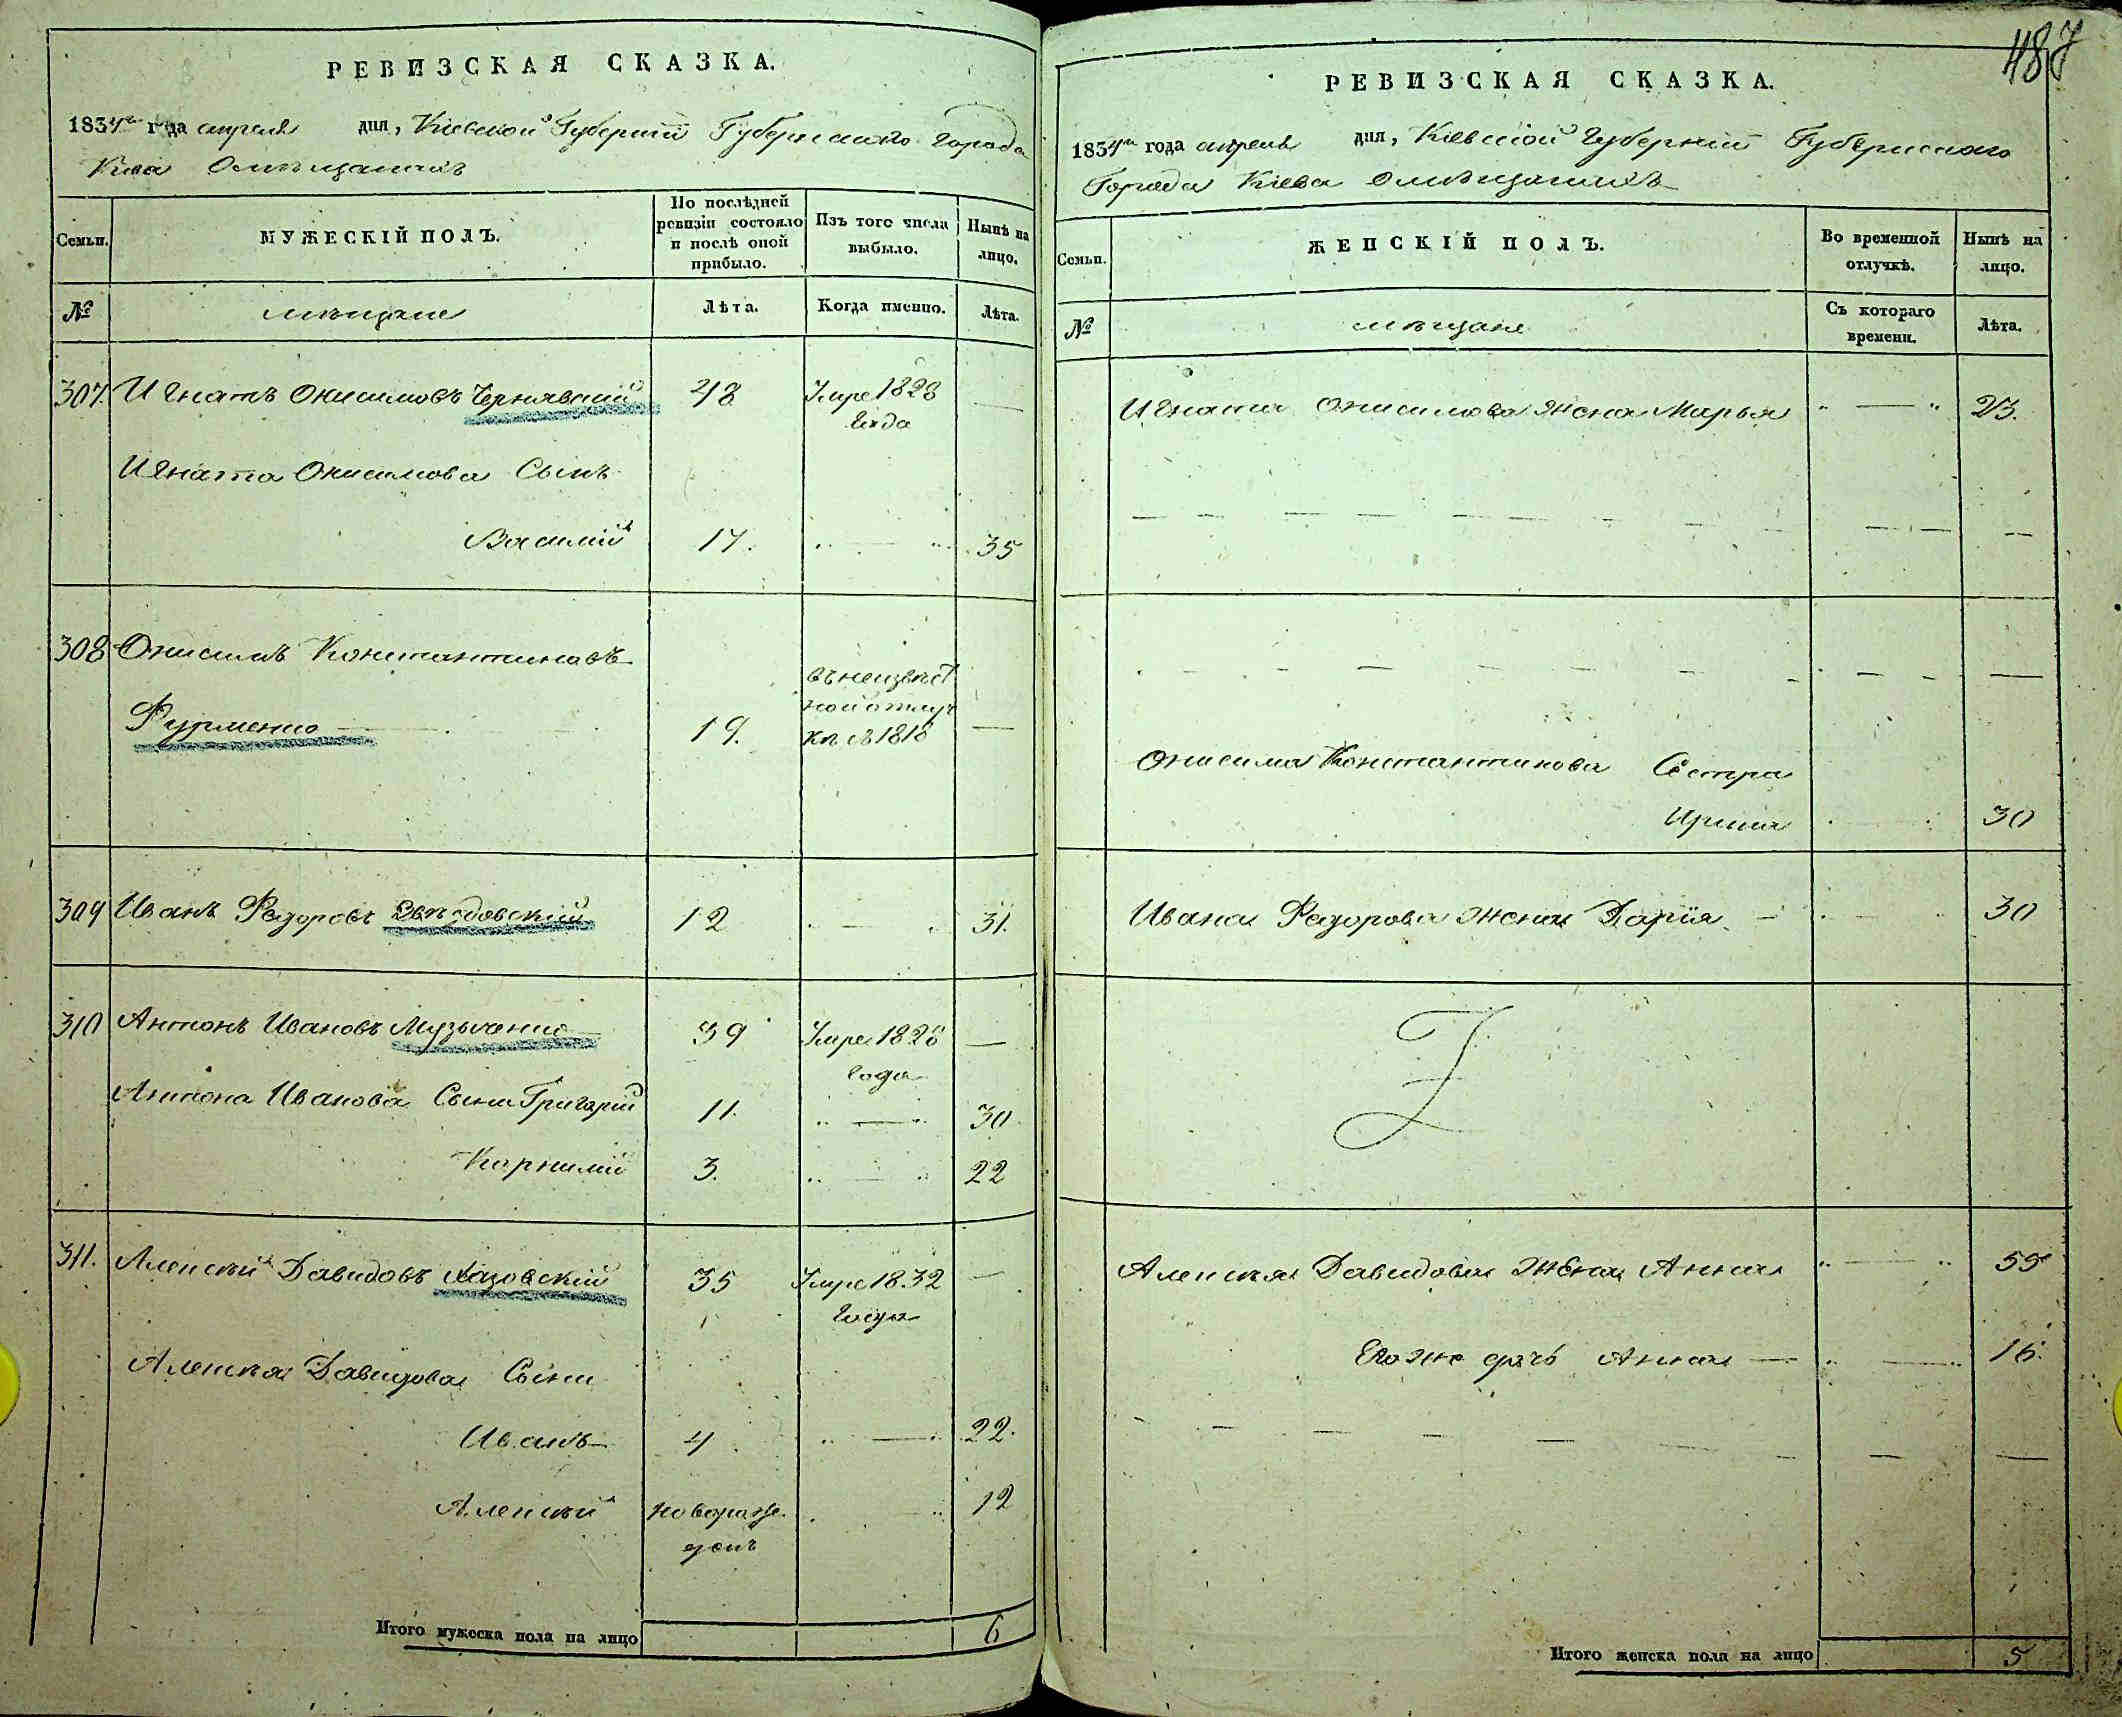 РЕВИЗСКАЯ СКАЗКА.
1834го года апреля дня, Кіевской Губерніи Губернскаго города
Кіева Омѣщанахъ
Семьи.
МУЖЕСКІЙ ПОЛЪ.
По послѣдней ревизіи состояло и послѣ оной прибыло.
Изъ того числа выбыло.
Нынѣ на лицо.
№
мѣщане
Лѣта.
Когда именно.
Лѣта.
307. Игнатъ Онисимовъ Чернявский 48 Умре 1828 —
Года
Игната Онисимова Сынъ
Василий 17. 35
308 Онисимъ Константиновъ
въ неизвѣст
ной отлуч
Фурменко 19. кѣ съ 1818 —
309 Иванъ Федоровъ 12 31.
310 Антонъ Ивановъ Музыченко 39 Умре 1828 —
года
Антона Иванова Сыни Григорий 11. 30
Карнилий 3. 22
311. Алексѣй Давидовъ 35 Умре 1832 —
Года
Алексѣя Давидова Сыни
Иванъ 4 22.
Алексѣй новорож 12
денъ
Итого мужеска пола на лицо 6
487
РЕВИЗСКАЯ СКАЗКА.
1834го года апреля дня, Кіевской Губерніи Губернскаго
Города Кіева Омѣщанахъ
Семьи.
ЖЕНСКІЙ ПОЛЪ.
Во временной отлучкѣ.
Нынѣ на лицо.
№
мѣщане
Съ котораго времени.
Лѣта.
Игната Онисимова Жена Марья 23.
Онисима Константинова Сестра
Ирина 30
Ивана Федорова жена Дария 30
Алексѣя Давидова Жена Анна 55
Его же дочь Анна 16.
Итого женска пола на лицо 5